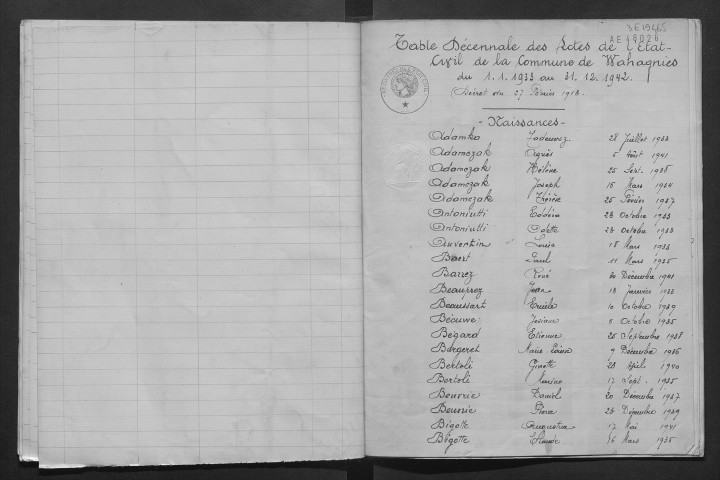 3 E 19465
AE 18026
Table Décennale des Actes de l'Etat-
Civil de la Commune de Wahagnies
du 1.1.1933 au 31.12.1942.
Décret du 27 Février 1913.
- Naissances -
Adamko 28 Juillet 1933
Adamczak Agnès 5 Août 1941
Adamczak Hélène 25 Sept. 1938
Adamczak Joseph 16 Mars 1934
Adamczak Thérèse 25 Février 1937
Antoniutti 23 Octobre 1933
Antoniutti Odette 23 Octobre 1933
Auvertin Louis 18 Mars 1933
Baert Paul 11 Mars 1935
Barrez René 20 Décembre 1941
Beauprez Jean 18 Janvier 1933
Beaussart Emile 10 Octobre 1939
Bécuwe Josiane 8 Octobre 1935
Bégard Etienne 25 Septembre 1938
Bergeret Marie 9 Décembre 1936
Bertoli Ginette 28 Avril 1940
Bertoli 17 Sept. 1935
Beuvrie Daniel 20 Décembre 1937
Beuvrie 23 Décembre 1939
Bigotte Augustin 17 Mai 1941
Bigotte 16 Mars 1935